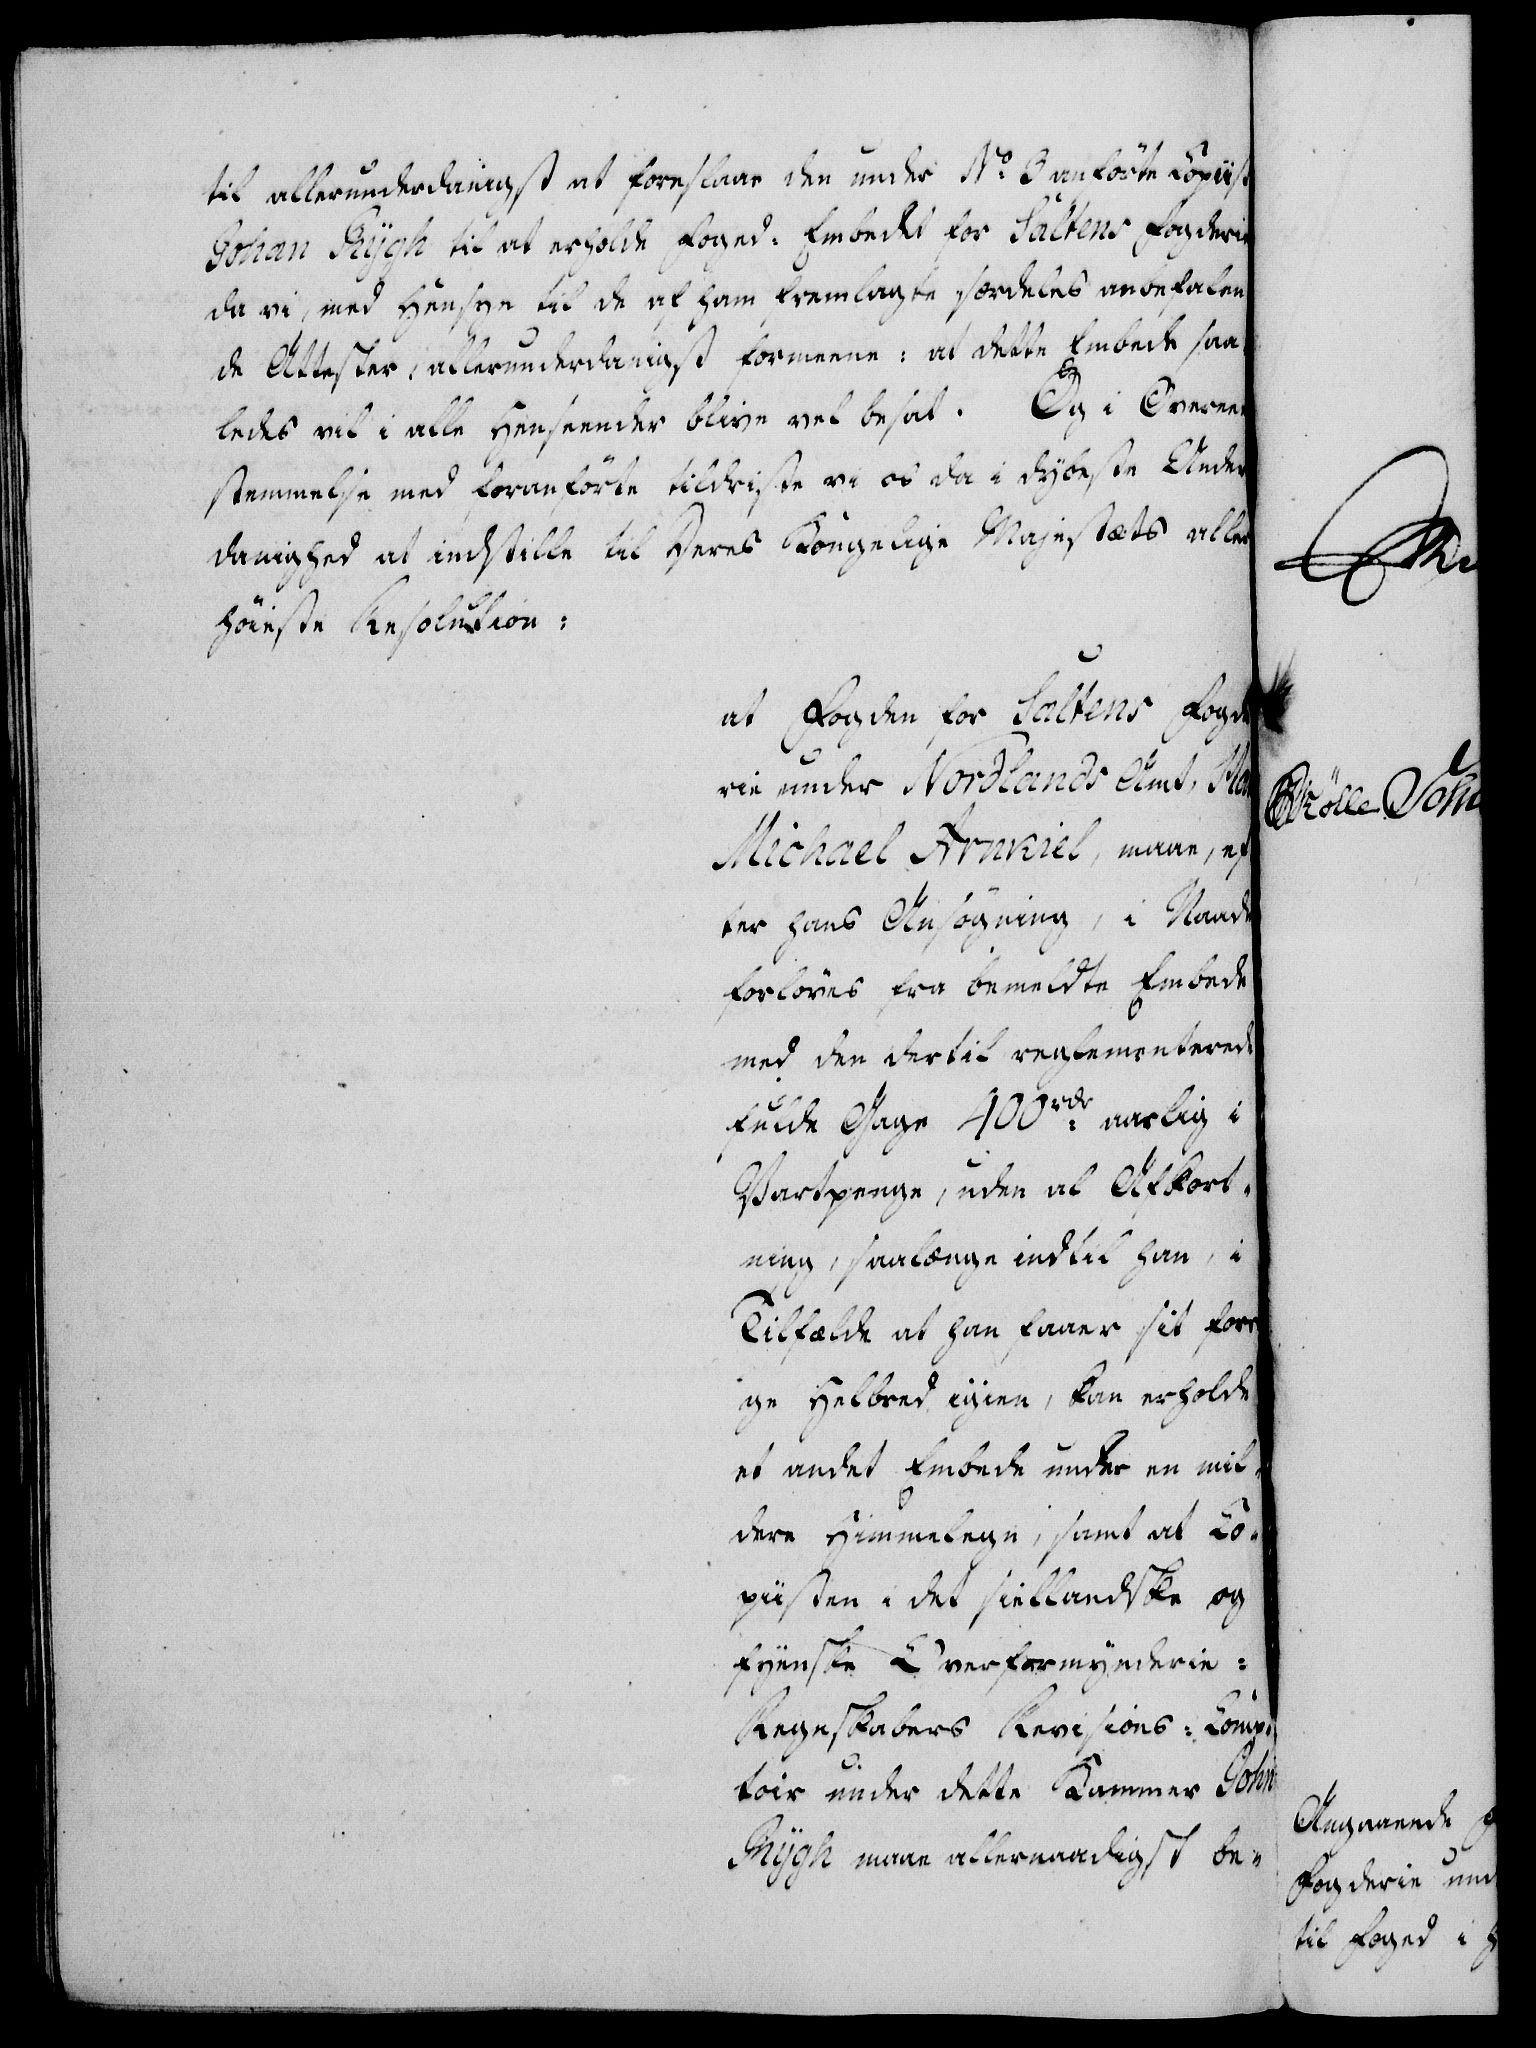 til allerunderdanigst at foreslaae den under No 3 anførte Copiist
Johan Rÿgh til at erholde Foged-Embedet for Saltens Fogderie
da vi, med Hensyn til de af ham fremlagte særdeles anbefalen
de Attester, allerunderdanigst formeene: at dette Embede saa
ledes vil i alle Henseender blive vel besat. Og i Overeens
stemmelse med foranførte tildriste vi os da i dÿbeste Under
danighed at indstille til Deres Kongelige Majestæts aller
høieste Resolution:
at Fogden for Saltens Fogde
rie under Nordlands Amt,
Michael Arnkiel, maae, ef
ter hans Ansøgning, i Naade
forløves fra bemeldte Embede
med den dertil reglementerede
fulde Gage 400 rdr: aarlig i
Vartpenge, uden al Afkort-
ning, saalænge indtil han, i
Tilfælde at han faaer sit forr
ige Helbred igien, kan erholde
et andet Embede under en mil-
dere Himmelegn, samt at Co-
piisten i det siellandske og
fyenske Overformÿnderie-
Regnskabers Revisions-Comp-
toir under dette Kammer John
Rÿgh maae allernaadigst be-
Angaaende
Fogderie und
til Foged i